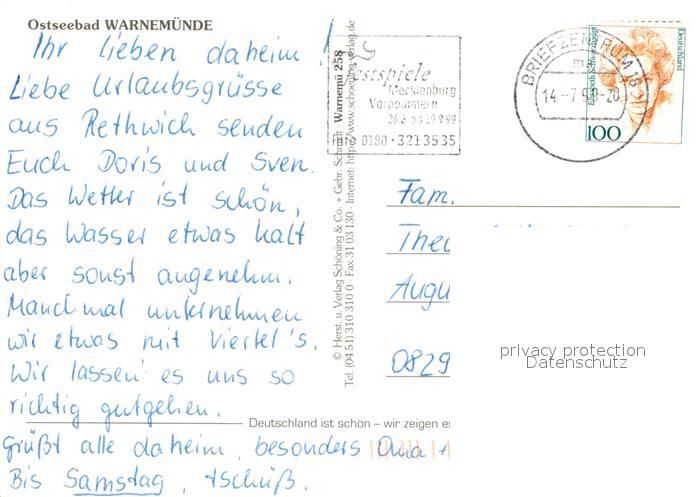 Ostseebad WARNEMÜNDE
Ihr lieben daheim!
Liebe Urlaubsgrüsse
aus Rethwich senden
Euch Doris und Sven.
Das Wetter ist schön,
das Wasser etwas kalt
aber sonst angenehm.
Manchmal unternehmen
wir etwas mit Viertel's.
Wir lassen es uns so
richtig gutgehen.
Grüßt alle daheim, besonders Oma +
Bis Samstag, tschüß.
Deutschland ist schön – wir zeigen es
© Herst. u. Verlag Schöning & Co. + Gebr. Schmidt · Warnemü 258
Tel. (04 51) 310 310 0 · Fax 31 03 130 · Internet: http://www.schoening-verlag.de
Festspiele
Mecklenburg
Vorpommern
26.6 bis 19.9.99
Info 0180 · 3213535
BRIEFZENTRUM 18
14.-7.99-20
Deutschland
100
Fam.
Theo
Augu
0829
privacy protection
Datenschutz